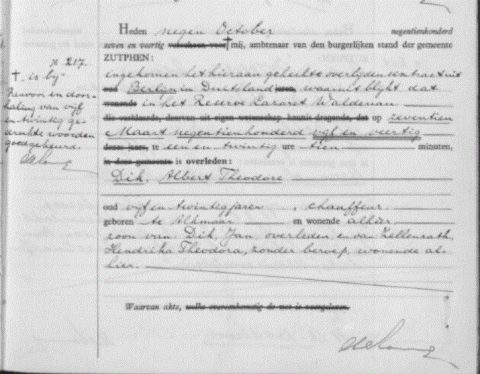 Heden negen October negentienhonderd
zeven en veertig verscheen voor mij, ambtenaar van den burgerlijken stand der gemeente
ZUTPHEN:
ingekomen het hieraan gehechte overlijdensextract uit
Berlijn in Duitsland jaren, waaruit blijkt dat
wonende in het Reserve Lazaret Waldenau
die verklaarde, daarvan uit eigen wetenschap kennis dragende, dat op zeventien
Maart negentienhonderd vijf en veertig
dezes jaars, te een en twintig ure tien minuten,
in deze gemeente is overleden:
Dik, Albert Theodore
oud vijf en twintig jaren, chauffeur,
geboren te Alkmaar en wonende alhier,
zoon van Dik, Jan, overleden, en van Zellenrath,
Hendrika Theodora, zonder beroep, wonende al-
hier.
Waarvan akte, welke overeenkomstig de wet is voorgelezen.
№ 217.
† is bij
Renvooi en door-
haling van vijf
en twintig ge-
drukte woorden
goedgekeurd.